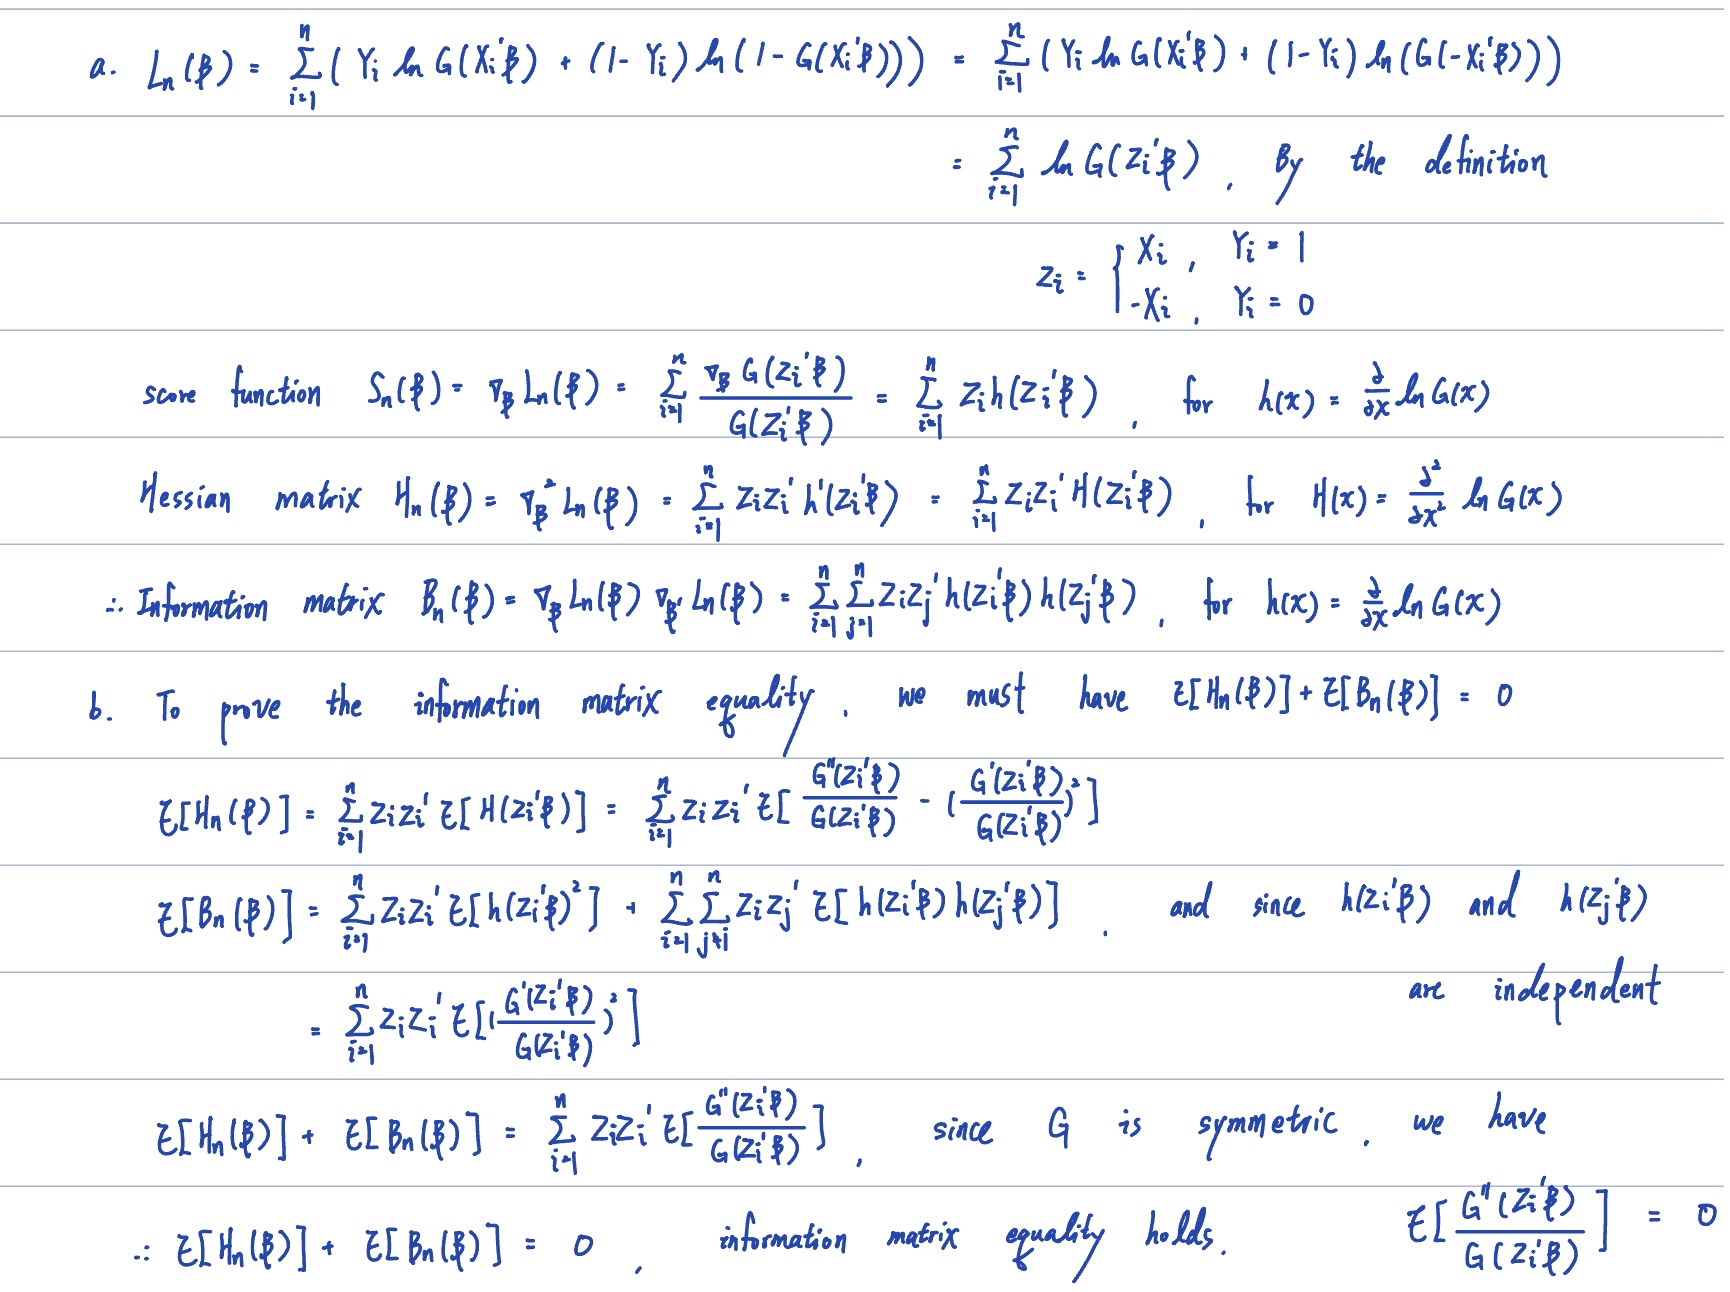 a. Ln(β) = Σ_{i=1}^{n} ( Yi ln G(Xi'β) + (1- Yi) ln (1 - G(Xi'β))) = Σ_{i=1}^{n} ( Yi ln G(Xi'β) + (1-Yi) ln (G(-Xi'β)))
= Σ_{i=1}^{n} ln G(Zi'β) , By the definition
Zi = { Xi , Yi = 1
-Xi , Yi = 0
score function Sn(β) = ∇β Ln(β) = Σ_{i=1}^{n} ∇β G(Zi'β) / G(Zi'β) = Σ_{i=1}^{n} Zi h(Zi'β) , for h(x) = ∂/∂x ln G(x)
Hessian matrix Hn(β) = ∇β² Ln(β) = Σ_{i=1}^{n} ZiZi' h'(Zi'β) = Σ_{i=1}^{n} ZiZi' H(Zi'β) , for H(x) = ∂²/∂x² ln G(x)
∴ Information matrix Bn(β) = ∇β Ln(β) ∇β' Ln(β) = Σ_{i=1}^{n} Σ_{j=1}^{n} ZiZj' h(Zi'β) h(Zj'β) , for h(x) = ∂/∂x ln G(x)
b. To prove the information matrix equality , we must have E[Hn(β)] + E[Bn(β)] = 0
E[Hn(β)] = Σ_{i=1}^{n} ZiZi' E[H(Zi'β)] = Σ_{i=1}^{n} ZiZi' E[ G''(Zi'β) / G(Zi'β) - ( G'(Zi'β) / G(Zi'β) )² ]
E[Bn(β)] = Σ_{i=1}^{n} ZiZi' E[h(Zi'β)²] + Σ_{i=1}^{n} Σ_{j≠i}^{n} ZiZj' E[ h(Zi'β) h(Zj'β)] , and since h(Zi'β) and h(Zj'β)
are independent
= Σ_{i=1}^{n} ZiZi' E[( G'(Zi'β) / G(Zi'β) )² ]
E[Hn(β)] + E[Bn(β)] = Σ_{i=1}^{n} ZiZi' E[ G''(Zi'β) / G(Zi'β) ] , since G is symmetric , we have
E[ G''(Zi'β) / G(Zi'β) ] = 0
∴ E[Hn(β)] + E[Bn(β)] = 0 , information matrix equality holds.